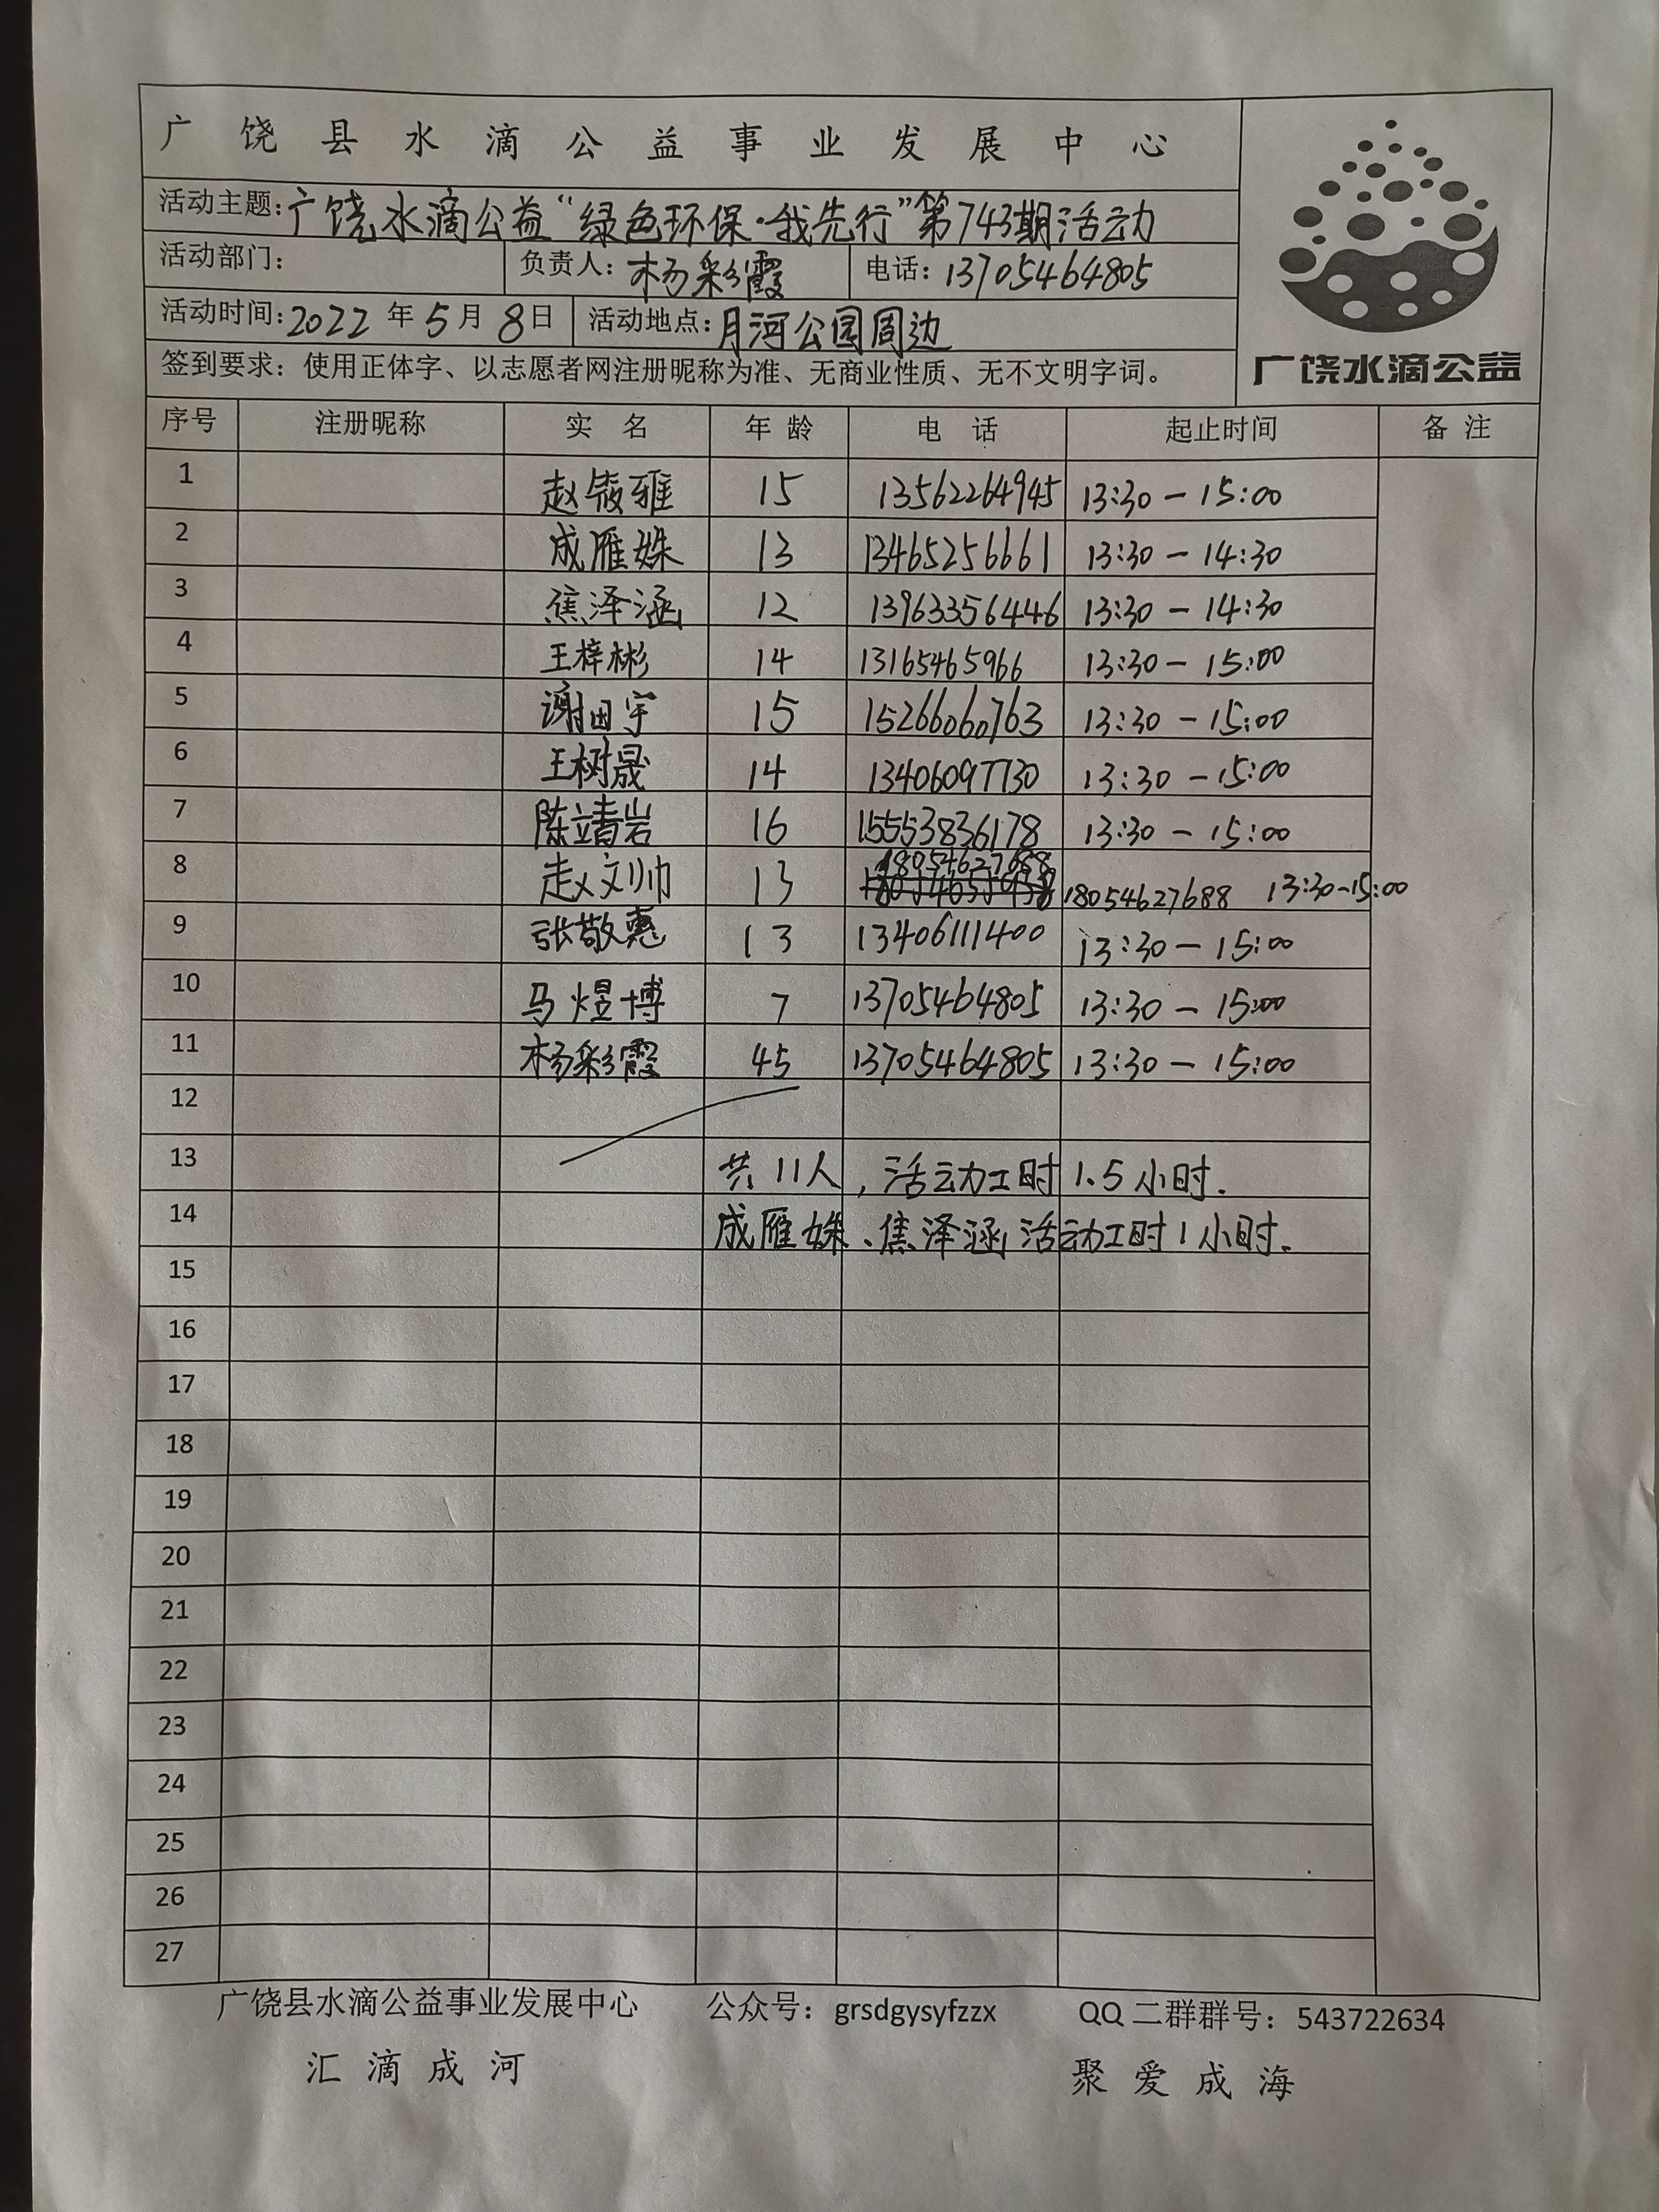 广饶县水滴公益事业发展中心
活动主题:广饶水滴公益“绿色环保·我先行”第743期活动
活动部门: 负责人:杨彩霞 电话:13705464805
活动时间:2022年5月8日 活动地点:月河公园周边
广饶水滴公益
签到要求:使用正体字、以志愿者网注册昵称为准、无商业性质、无不文明字词。
序号 注册昵称 实名 年龄 电话 起止时间 备注
1 赵筱雅 15 13562264945 13:30-15:00
2 成雁姝 13 13465256661 13:30-14:30
3 焦泽涵 12 13963356446 13:30-14:30
4 王梓彬 14 13165465966 13:30-15:00
5 谢田宇 15 15266060763 13:30-15:00
6 王树晟 14 13406097730 13:30-15:00
7 陈靖岩 16 15553836178 13:30-15:00
8 赵文帅 13 18054627688 18054627688 13:30-15:00
9 张敬惠 13 13406111400 13:30-15:00
10 马煜博 7 13705464805 13:30-15:00
11 杨彩霞 45 13705464805 13:30-15:00
12
13 共11人,活动工时1.5小时.
14 成雁姝、焦泽涵活动工时1小时.
15
16
17
18
19
20
21
22
23
24
25
26
27
广饶县水滴公益事业发展中心 公众号:grsdgysyfzzx QQ二群群号:543722634
汇滴成河 聚爱成海